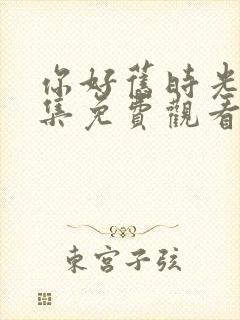 你好舊時光
集免費觀看
東宮子弦